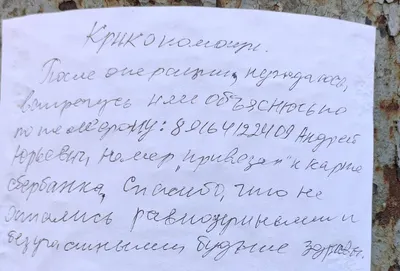 Крик о помощи.
После операции, нуждаюсь,
встречусь или объяснюсь по
по телефону: 89164122409 Андрей
Юрьевич, номер "привязан" к карте
сбербанка, Спасибо, что не
остались равнодушными и
безучастными будьте здоровы.